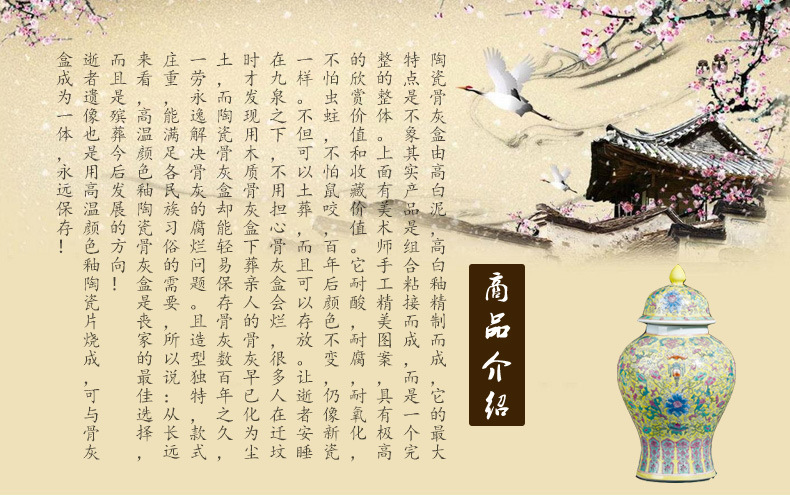 陶瓷骨灰盒由高白泥,高白釉精制而成,它的最大
特点是不象其实产品是组合粘接而成,而是一个完
整的整体。上面有美术师手工精美图案,具有极高
的欣赏价值和收藏价值。它耐酸,耐腐,耐氧化,
不怕虫蛀,不怕鼠咬,百年后颜色不变,仍像新瓷
一样。不但可以土葬,而且可以存放。让逝者安睡
在九泉之下,不用担心骨灰盒会烂,很多人在迁坟
时才发现用木质骨灰盒下葬亲人的骨灰早已化为尘
土,而陶瓷骨灰盒却能轻易保存骨灰数百年之久,
一劳永逸解决骨灰的腐烂问题。且造型独特,款式
庄重,能满足各民族习俗的需要,所以说:从长远
来看,高温颜色釉陶瓷骨灰盒是丧家的最佳选择,
而且是殡葬今后发展的方向!
逝者遗像也是用高温颜色釉陶瓷片烧成,可与骨灰
盒成为一体,永远保存!
商品介绍